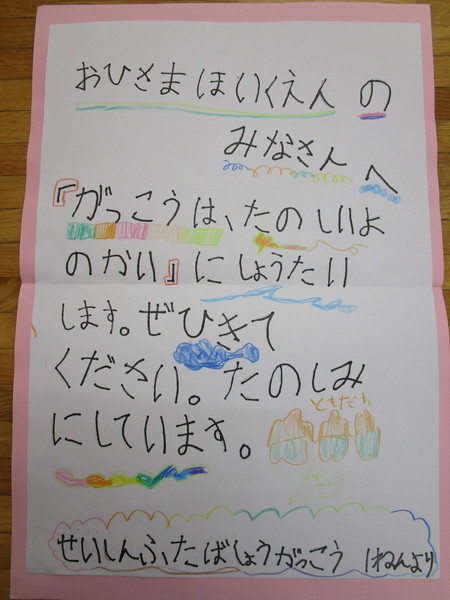 おひさまほいくえんの
みなさんへ
『がっこうは、たのしいよ
のかい』にしょうたい
します。ぜひきて
ください。たのしみ
にしています。
ともだち
せいしんふたばしょうがっこう 1ねんより